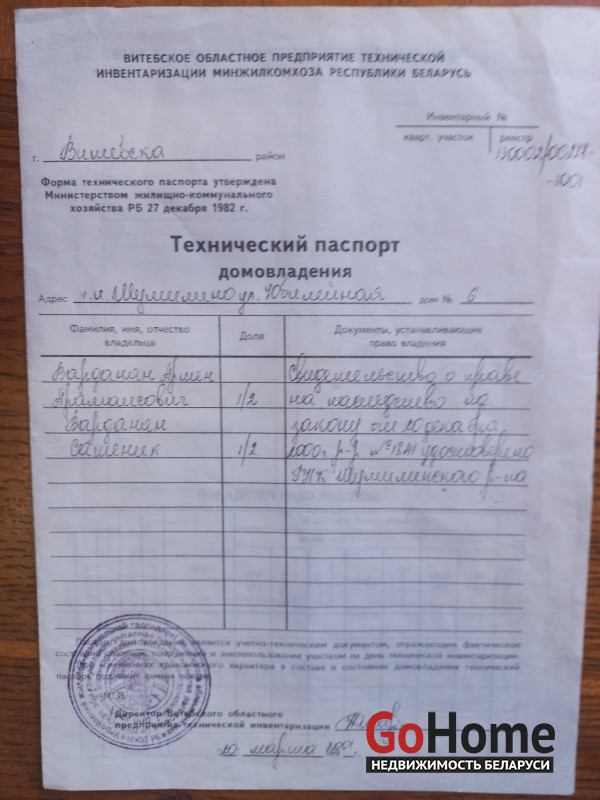 ВИТЕБСКОЕ ОБЛАСТНОЕ ПРЕДПРИЯТИЕ ТЕХНИЧЕСКОЙ
ИНВЕНТАРИЗАЦИИ МИНЖИЛКОМХОЗА РЕСПУБЛИКИ БЕЛАРУСЬ
Инвентарный №
кварт. участок реестр
г. Витебска район
130002/00217-
-1001
Форма технического паспорта утверждена
Министерством жилищно-коммунального
хозяйства РБ 27 декабря 1982 г.
Технический паспорт
домовладения
Адрес г.п. Шумилино ул. Юбилейная дом № 6
Фамилия, имя, отчество
владельца
Доля
Документы, устанавливающие
право владения
Варданян Армен Свидетельство о праве
1/2 на наследство по
Варданян закону от
1/2 2000г. р-р №1841 удостоверено
ГНК Шумилинского р-на
является учетно-техническим документом, отражающим фактическое
и землепользование участком на день технической инвентаризации.
характера в составе и состоянии домовладения технический
Директор Витебского областного
предприятия технической инвентаризации
20 марта
GoHome
НЕДВИЖИМОСТЬ БЕЛАРУСИ